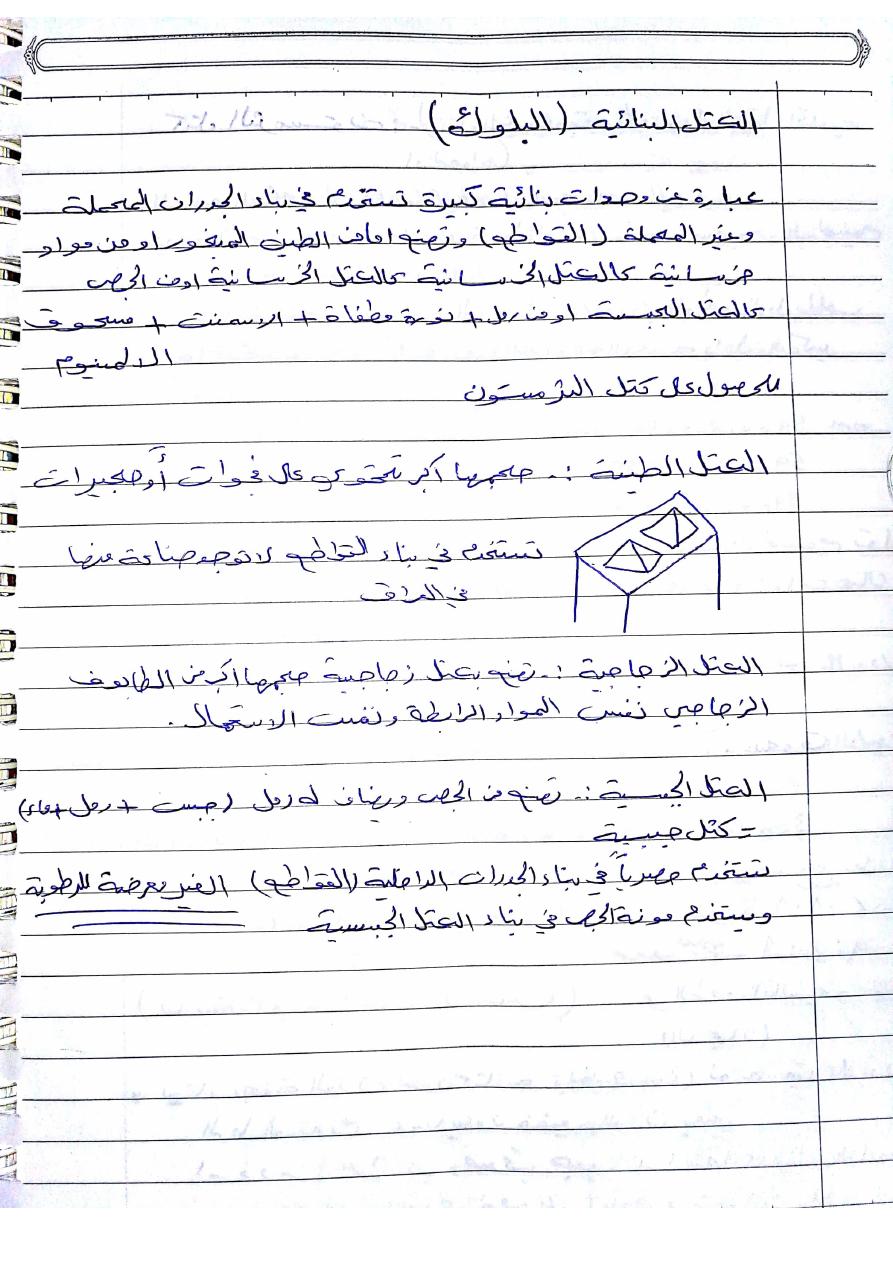 الكتل البنائية (البلوك)
عبارة عن وحدات بنائية كبيرة تستخدم في بناء الجدران المحملة
وغير المحملة (القواطع) وتصنع اما من الطين المفخور او من مواد
خرسانية كالكتل الخرسانية كالكتل الخرسانية او من الجص
كالكتل الجبسية او من رمل + نورة مطفاة + الاسمنت + مسحوق
الالمنيوم
للحصول على كتل الثرمستون
الكتل الطينية :- حجمها اكبر تحتوي على فجوات أو حجيرات
تستخدم في بناء القواطع لا توجد صناعة منها
في العراق
الكتل الزجاجية :- تصنع بكتل زجاجية حجمها اكبر من الطابوق
الزجاجي نفس المواد الرابطة ونفس الاستعمال.
الكتل الجبسية :- تصنع من الجص ويضاف له رمل (جبس + رمل + ماء)
= كتل جبسية
تستخدم حصرياً في بناء الجدران الداخلية (القواطع) الغير معرضة للرطوبة
ويستخدم مونة الجص في بناء الكتل الجبسية